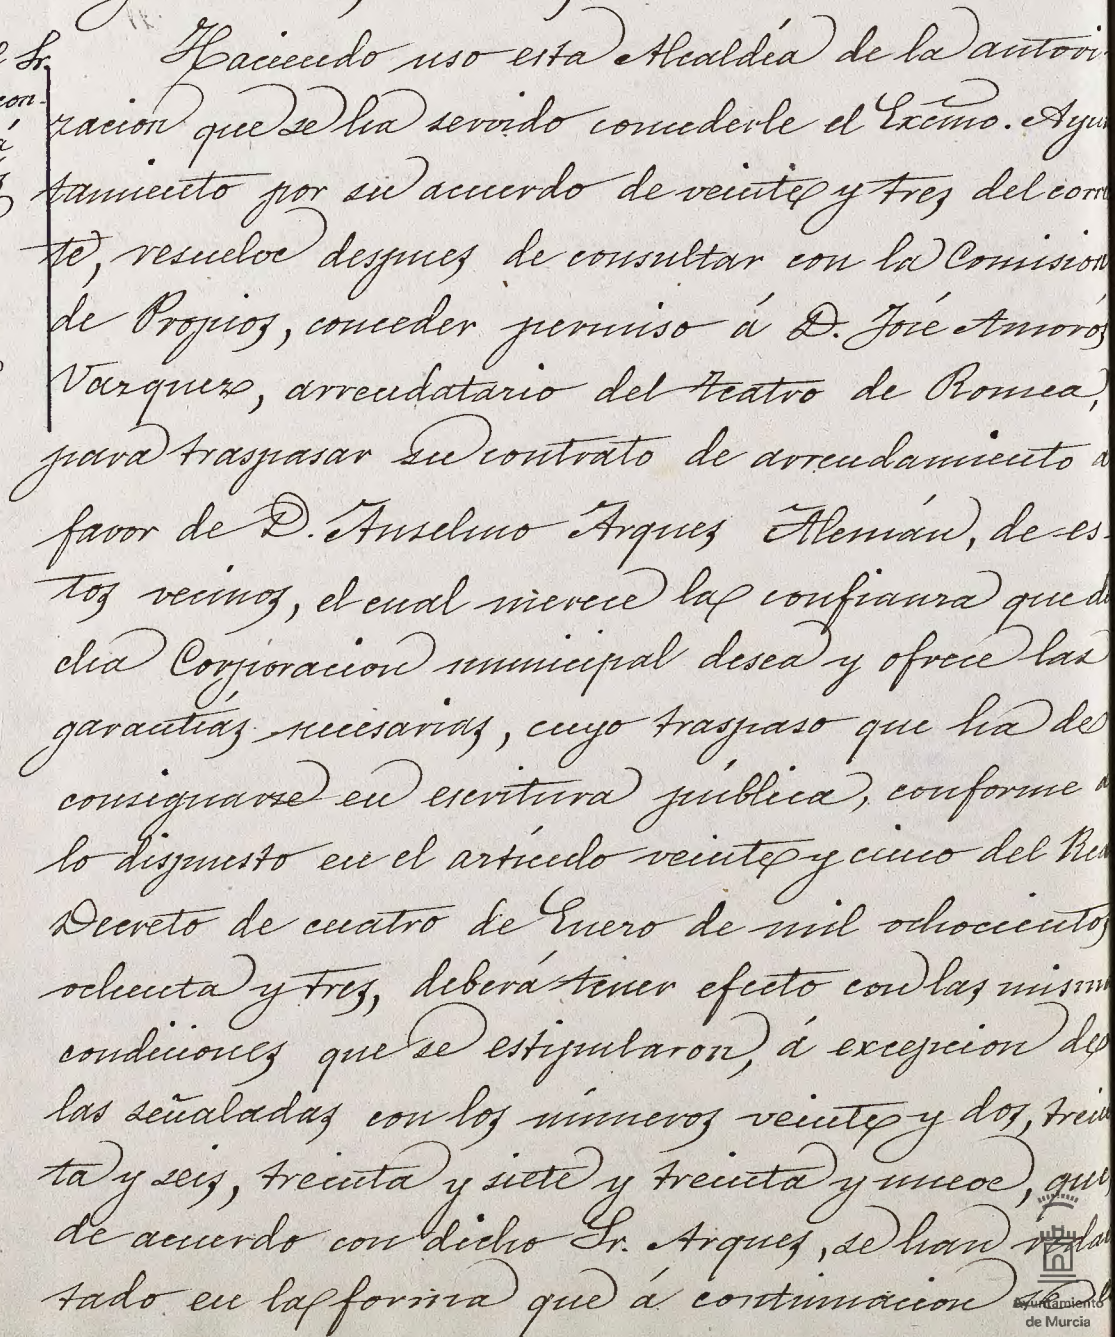 l Sr.
con-
á
Haciendo uso esta Alcaldía de la autori-
zacion que se ha servido concederle el Excmo. Ayun
tamiento por su acuerdo de veinte y tres del corrie
te, resuelve despues de consultar con la Comision
de Propios, conceder permiso á D. José Amorós
Vazquez, arrendatario del teatro de Romea,
para traspasar su contrato de arrendamiento á
favor de D. Anselmo Arques Alemán, de es-
tos vecinos, el cual merece la confianza que di
cha Corporacion municipal desea y ofrece las
garantías necesarias, cuyo traspaso que ha de
consignarse en escritura pública, conforme á
lo dispuesto en el artículo veinte y cinco del Real
Decreto de cuatro de Enero de mil ochocientos
ochenta y tres, deberá tener efecto con las misma
condiciones que se estipularon, á excepcion de
las señaladas con los números veinte y dos, trein
ta y seis, treinta y siete y treinta y nueve, que
de acuerdo con dicho Sr. Arques, se han redac
tado en la forma que á continuacion se
Ayuntamiento
de Murcia